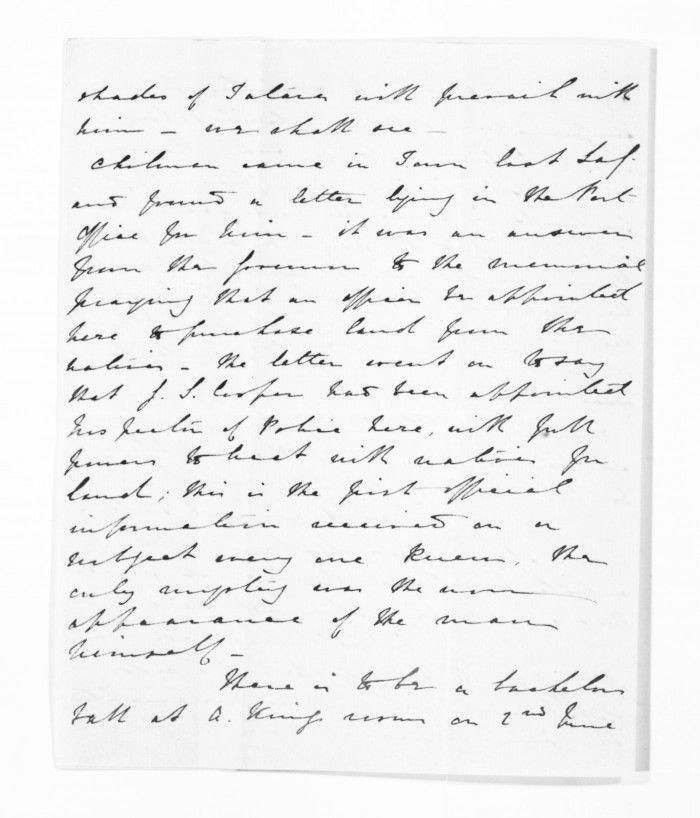 shades of Tatara will prevail with
him - we shall see -
Chilman came in Town last Saf.
and found a letter lying in the Post
Office for him - it was an answer
from the Governor to the memorial
praying that an officer be appointed
here to purchase land from the
natives - the letter went on to say
that J. S. Cooper had been appointed
Inspector of Police here, with full
powers to treat with natives for
land; this is the first official
information received on a
subject every one knew, the
only mystery was the non
appearance of the man
himself -
There is to be a bachelors
ball at A. Kings rooms on 2nd June